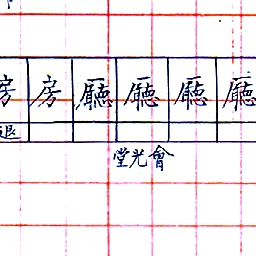 房房廳廳廳廳
退
會光堂